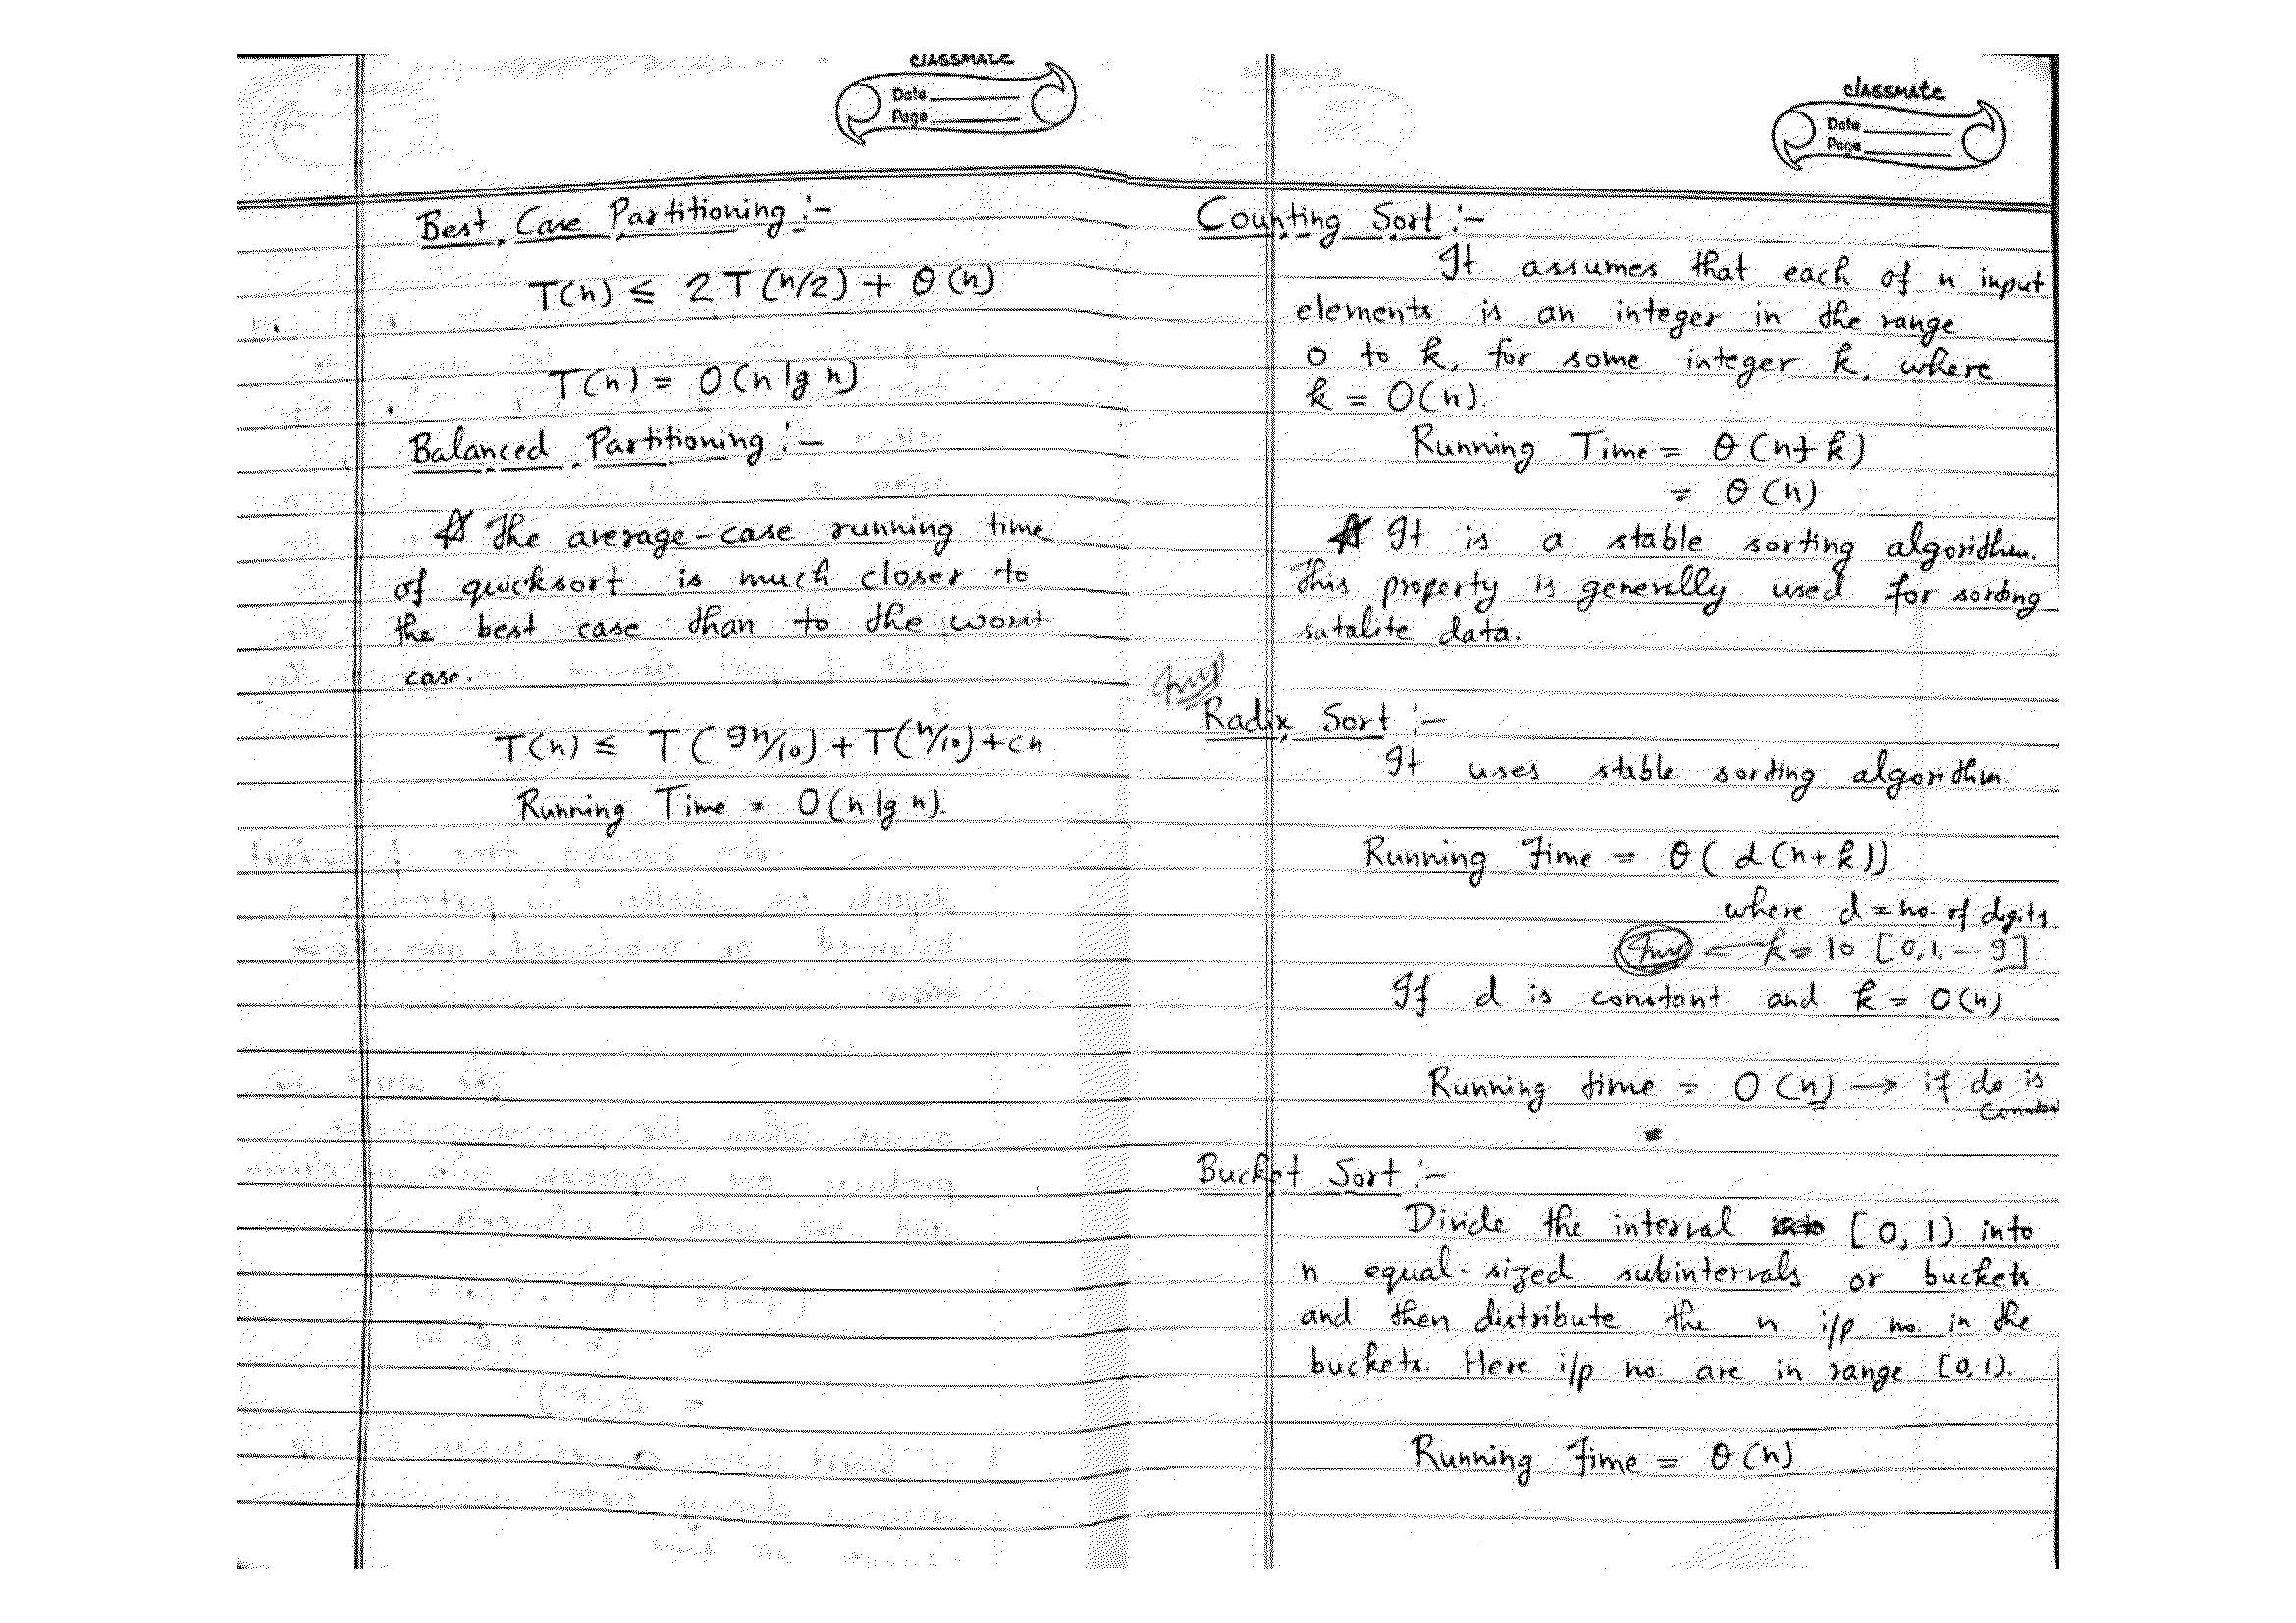 classmate
Date
Page
Best Case Partitioning :-
T(n) ≤ 2T(n/2) + θ(n)
T(n) = O(n lg n)
Balanced Partitioning :-
The average-case running time
of quicksort is much closer to
the best case than to the worst
case.
T(n) ≤ T(9n/10) + T(n/10) + cn
Running Time = O(n lg n).
classmate
Date
Page
Counting Sort :-
It assumes that each of n input
elements is an integer in the range
0 to k, for some integer k, where
k = O(n).
Running Time = θ(n+k)
= θ(n)
It is a stable sorting algorithm.
This property is generally used for sorting
satalite data.
Radix Sort :-
It uses stable sorting algorithm.
Running Time = θ(d(n+k))
where d = no. of digits
← k = 10 [0,1,-9]
If d is constant and k = O(n)
Running time = O(n) → if do is
Constant
Bucket Sort :-
Divide the interval [0, 1) into
n equal-sized subintervals or buckets
and then distribute the n i/p no. in the
buckets. Here i/p no. are in range [0,1).
Running Time = θ(n)